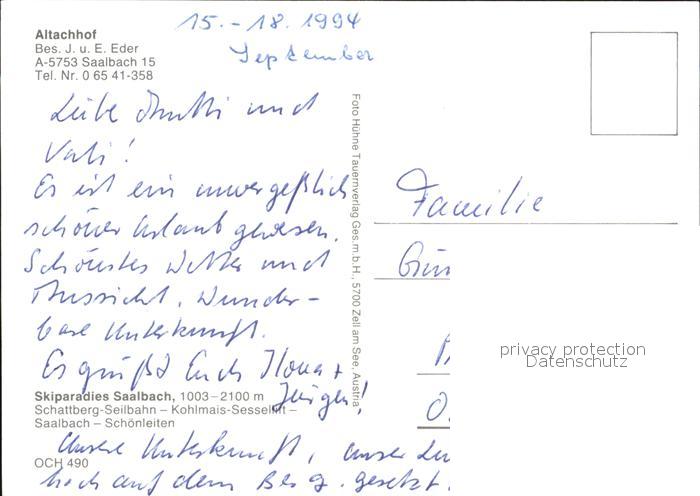 15.-18. 1994
September
Altachhof
Bes. J. u. E. Eder
A-5753 Saalbach 15
Tel. Nr. 0 65 41-358
Liebe Mutti und
Vati!
Es ist ein unvergeßlich
schöner Urlaub gewesen.
Schönstes Wetter und
Aussicht. Wunder-
bare Unterkunft.
Es grüßt Euch Ilona +
Jürgen!
Skiparadies Saalbach, 1003–2100 m
Schattberg-Seilbahn – Kohlmais-Sessellift –
Saalbach – Schönleiten
Unsere Unterkunft, unser
hoch auf dem Berg. gesetzt.
OCH 490
Foto Hühne Tauernverlag Ges.m.b.H., 5700 Zell am See, Austria
Familie
Gün
O.
privacy protection
Datenschutz